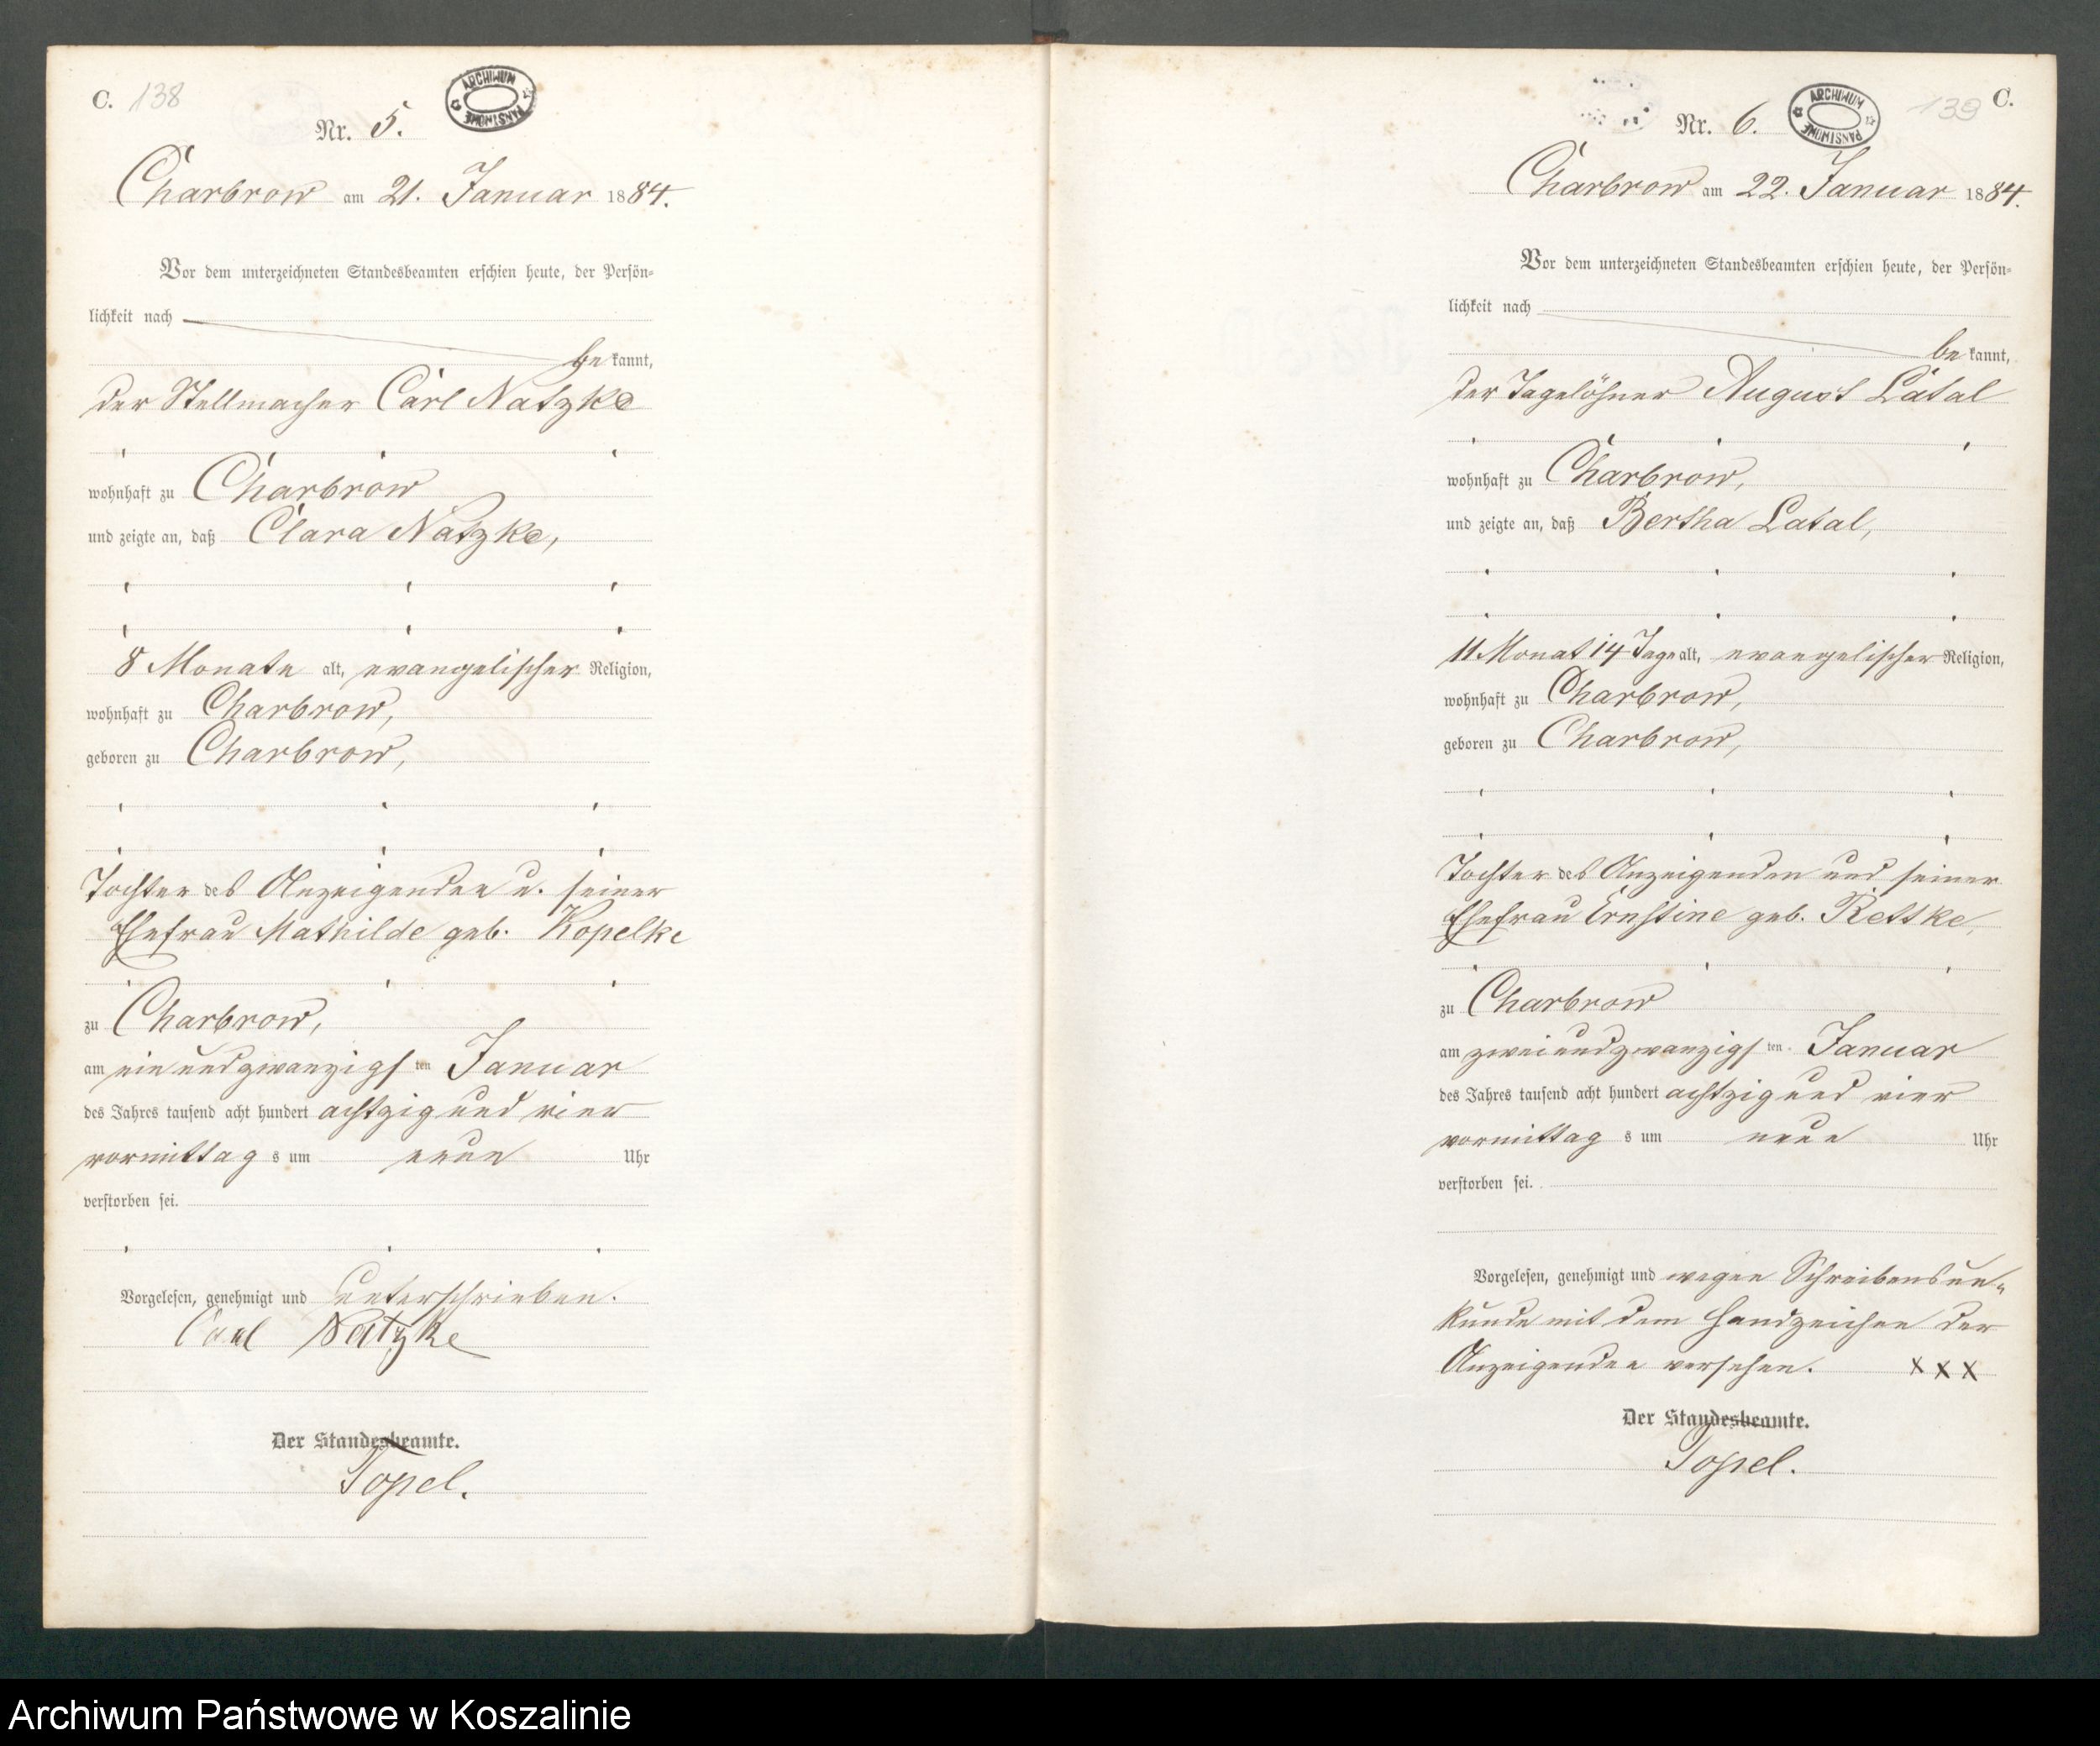 C. 138
ARCHIWUM PAŃSTWOWE
Nr. 5.
Charbrow am 21. Januar 1884.
Vor dem unterzeichneten Standesbeamten erschien heute, der Persön-
lichkeit nach
bekannt,
der Stellmacher Carl Natzke
wohnhaft zu Charbrow
und zeigte an, daß Clara Natzke,
8 Monate alt, evangelischer Religion,
wohnhaft zu Charbrow,
geboren zu Charbrow,
Tochter des Anzeigenden u. seiner
Ehefrau Mathilde geb. Kopelke
zu Charbrow,
am einundzwanzigsten Januar
des Jahres tausend acht hundert achtzig und vier
vormittags um neun Uhr
verstorben sei.
Vorgelesen, genehmigt und unterschrieben.
Carl Natzke
Der Standesbeamte.
Topel.
139 C.
ARCHIWUM PAŃSTWOWE
Nr. 6.
Charbrow am 22. Januar 1884.
Vor dem unterzeichneten Standesbeamten erschien heute, der Persön-
lichkeit nach
bekannt,
der Tagelöhner August Latal
wohnhaft zu Charbrow,
und zeigte an, daß Bertha Latal,
11 Monat 14 Tage alt, evangelischer Religion,
wohnhaft zu Charbrow,
geboren zu Charbrow,
Tochter des Anzeigenden und seiner
Ehefrau Ernstine geb. Rettke,
zu Charbrow
am zweiundzwanzigsten Januar
des Jahres tausend acht hundert achtzig und vier
vormittags um neun Uhr
verstorben sei.
Vorgelesen, genehmigt und wegen Schreibensun-
kunde mit dem Handzeichen der
Anzeigenden versehen. x x x
Der Standesbeamte.
Topel.
Archiwum Państwowe w Koszalinie